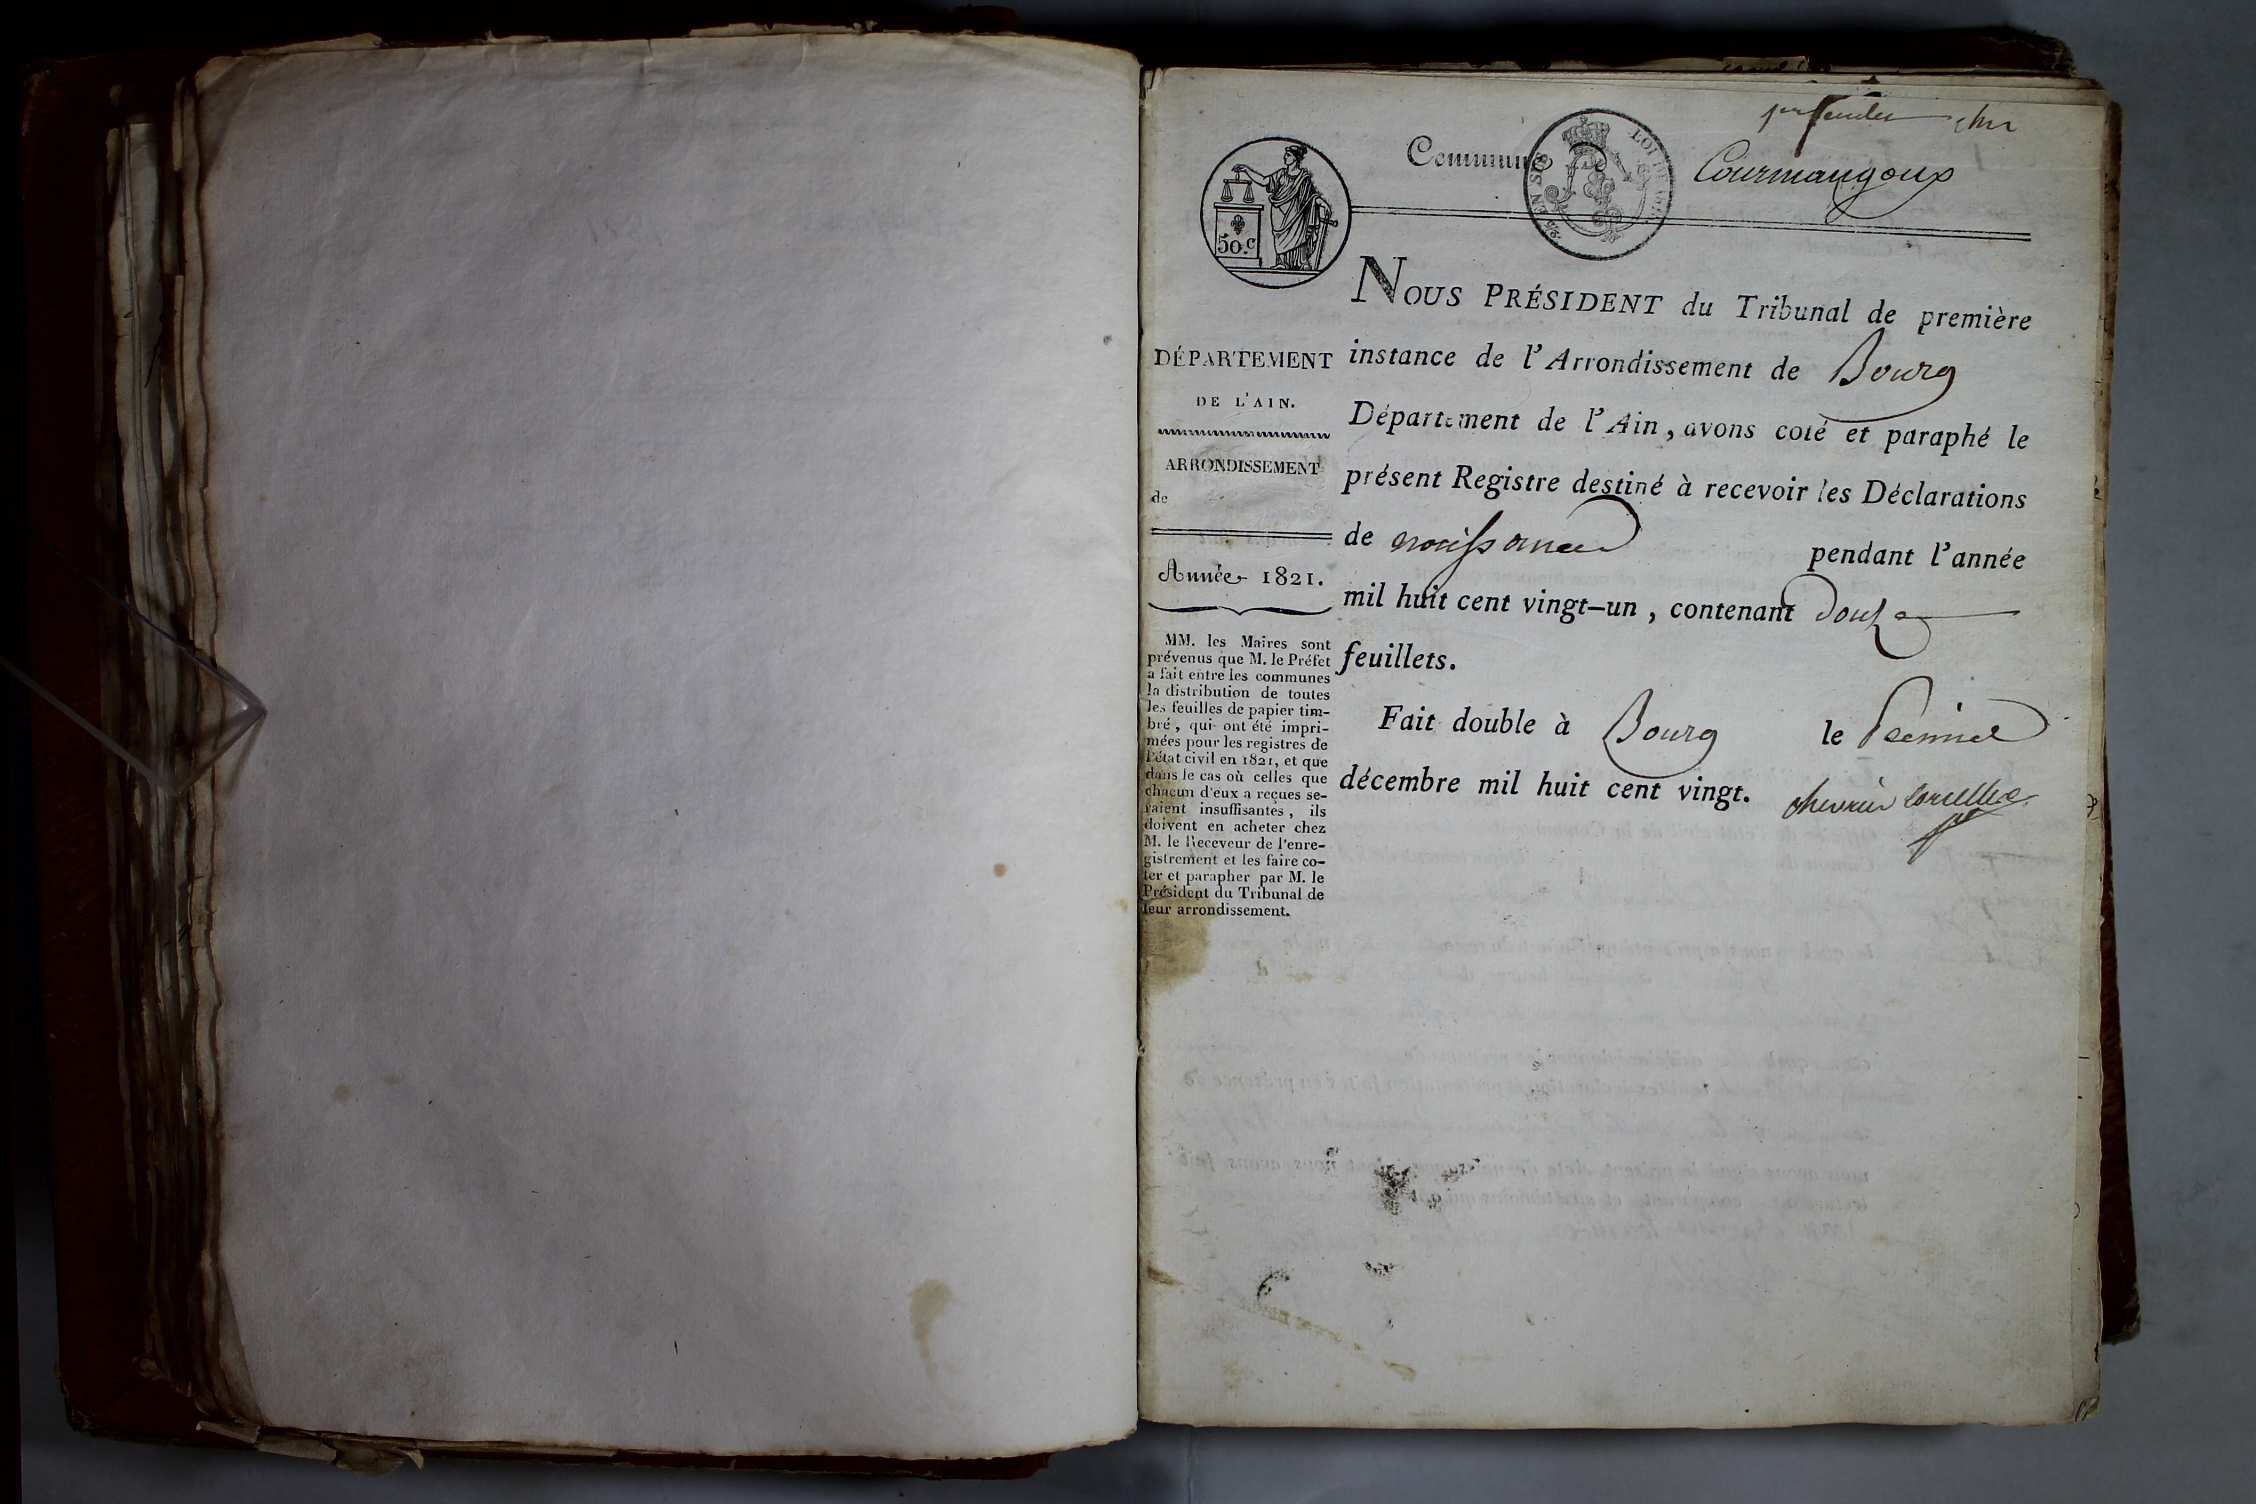 1er feuillet
Commune Courmangoux
50.c
EN SUS
NOUS PRÉSIDENT du Tribunal de première
instance de l'Arrondissement de Bourg
Département de l'Ain, avons coté et paraphé le
présent Registre destiné à recevoir les Déclarations
de naissance pendant l'année
mil huit cent vingt-un, contenant douze
feuillets.
Fait double à Bourg le Premier
décembre mil huit cent vingt.
DÉPARTEMENT
DE L'AIN.
ARRONDISSEMENT
de
Année 1821.
MM. les Maires sont
prévenus que M. le Préfet
a fait entre les communes
la distribution de toutes
les feuilles de papier tim-
bré, qui ont été impri-
mées pour les registres de
l'état civil en 1821, et que
dans le cas où celles que
chacun d'eux a reçues se-
raient insuffisantes, ils
doivent en acheter chez
M. le Receveur de l'enre-
gistrement et les faire co-
ter et parapher par M. le
Président du Tribunal de
leur arrondissement.